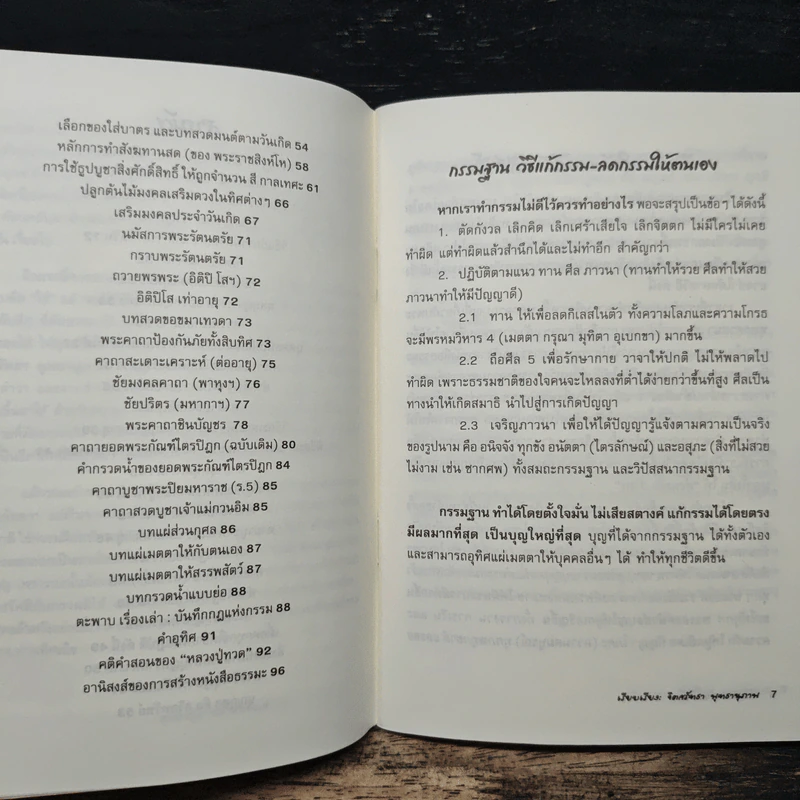 เลือกของใส่บาตร และบทสวดมนต์ตามวันเกิด 54
หลักการทำสังฆทานสด (ของ พระราชสิงห์โห) 58
การใช้ธูปบูชาสิ่งศักดิ์สิทธิ์ ให้ถูกจำนวน สี กาลเทศะ 61
ปลูกต้นไม้มงคลเสริมดวงในทิศต่างๆ 66
เสริมมงคลประจำวันเกิด 67
นมัสการพระรัตนตรัย 71
กราบพระรัตนตรัย 71
ถวายพรพระ (อิติปิ โสฯ) 72
อิติปิโส เท่าอายุ 72
บทสวดขอขมาเทวดา 73
พระคาถาป้องกันภัยทั้งสิบทิศ 73
คาถาสะเดาะเคราะห์ (ต่ออายุ) 75
ชัยมงคลคาถา (พาหุงฯ) 76
ชัยปริตร (มหากาฯ) 77
พระคาถาชินบัญชร 78
คาถายอดพระกัณฑ์ไตรปิฎก (ฉบับเดิม) 80
คำกรวดน้ำของยอดพระกัณฑ์ไตรปิฎก 84
คาถาบูชาพระปิยมหาราช (ร.5) 85
คาถาสวดบูชาเจ้าแม่กวนอิม 85
บทแผ่ส่วนกุศล 86
บทแผ่เมตตาให้กับตนเอง 87
บทแผ่เมตตาให้สรรพสัตว์ 87
บทกรวดน้ำแบบย่อ 88
ตะพาบ เรื่องเล่า : บันทึกกฎแห่งกรรม 88
คำอุทิศ 91
คติคำสอนของ “หลวงปู่ทวด” 92
อานิสงส์ของการสร้างหนังสือธรรมะ 96
กรรมฐาน วิธีแก้กรรม-ลดกรรมให้ตนเอง
หากเราทำกรรมไม่ดีไว้ควรทำอย่างไร พอจะสรุปเป็นข้อๆ ได้ดังนี้
1. ตัดกังวล เลิกคิด เลิกเศร้าเสียใจ เลิกจิตตก ไม่มีใครไม่เคย
ทำผิด แต่ทำผิดแล้วสำนึกได้และไม่ทำอีก สำคัญกว่า
2. ปฏิบัติตามแนว ทาน ศีล ภาวนา (ทานทำให้รวย ศีลทำให้สวย
ภาวนาทำให้มีปัญญาดี)
2.1 ทาน ให้เพื่อลดกิเลสในตัว ทั้งความโลภและความโกรธ
จะมีพรหมวิหาร 4 (เมตตา กรุณา มุทิตา อุเบกขา) มากขึ้น
2.2 ถือศีล 5 เพื่อรักษากาย วาจาให้ปกติ ไม่ให้พลาดไป
ทำผิด เพราะธรรมชาติของใจคนจะไหลลงที่ต่ำได้ง่ายกว่าขึ้นที่สูง ศีลเป็น
ทางนำให้เกิดสมาธิ นำไปสู่การเกิดปัญญา
2.3 เจริญภาวนา เพื่อให้ได้ปัญญารู้แจ้งตามความเป็นจริง
ของรูปนาม คือ อนิจจัง ทุกขัง อนัตตา (ไตรลักษณ์) และอสุภะ (สิ่งที่ไม่สวย
ไม่งาม เช่น ซากศพ) ทั้งสมถะกรรมฐาน และวิปัสสนากรรมฐาน
กรรมฐาน ทำได้โดยตั้งใจมั่น ไม่เสียสตางค์ แก้กรรมได้โดยตรง
มีผลมากที่สุด เป็นบุญใหญ่ที่สุด บุญที่ได้จากกรรมฐาน ได้ทั้งตัวเอง
และสามารถอุทิศแผ่เมตตาให้บุคคลอื่นๆ ได้ ทำให้ทุกชีวิตดีขึ้น
เรียบเรียง: จิตสวัตรา พุทธานุภาพ 7